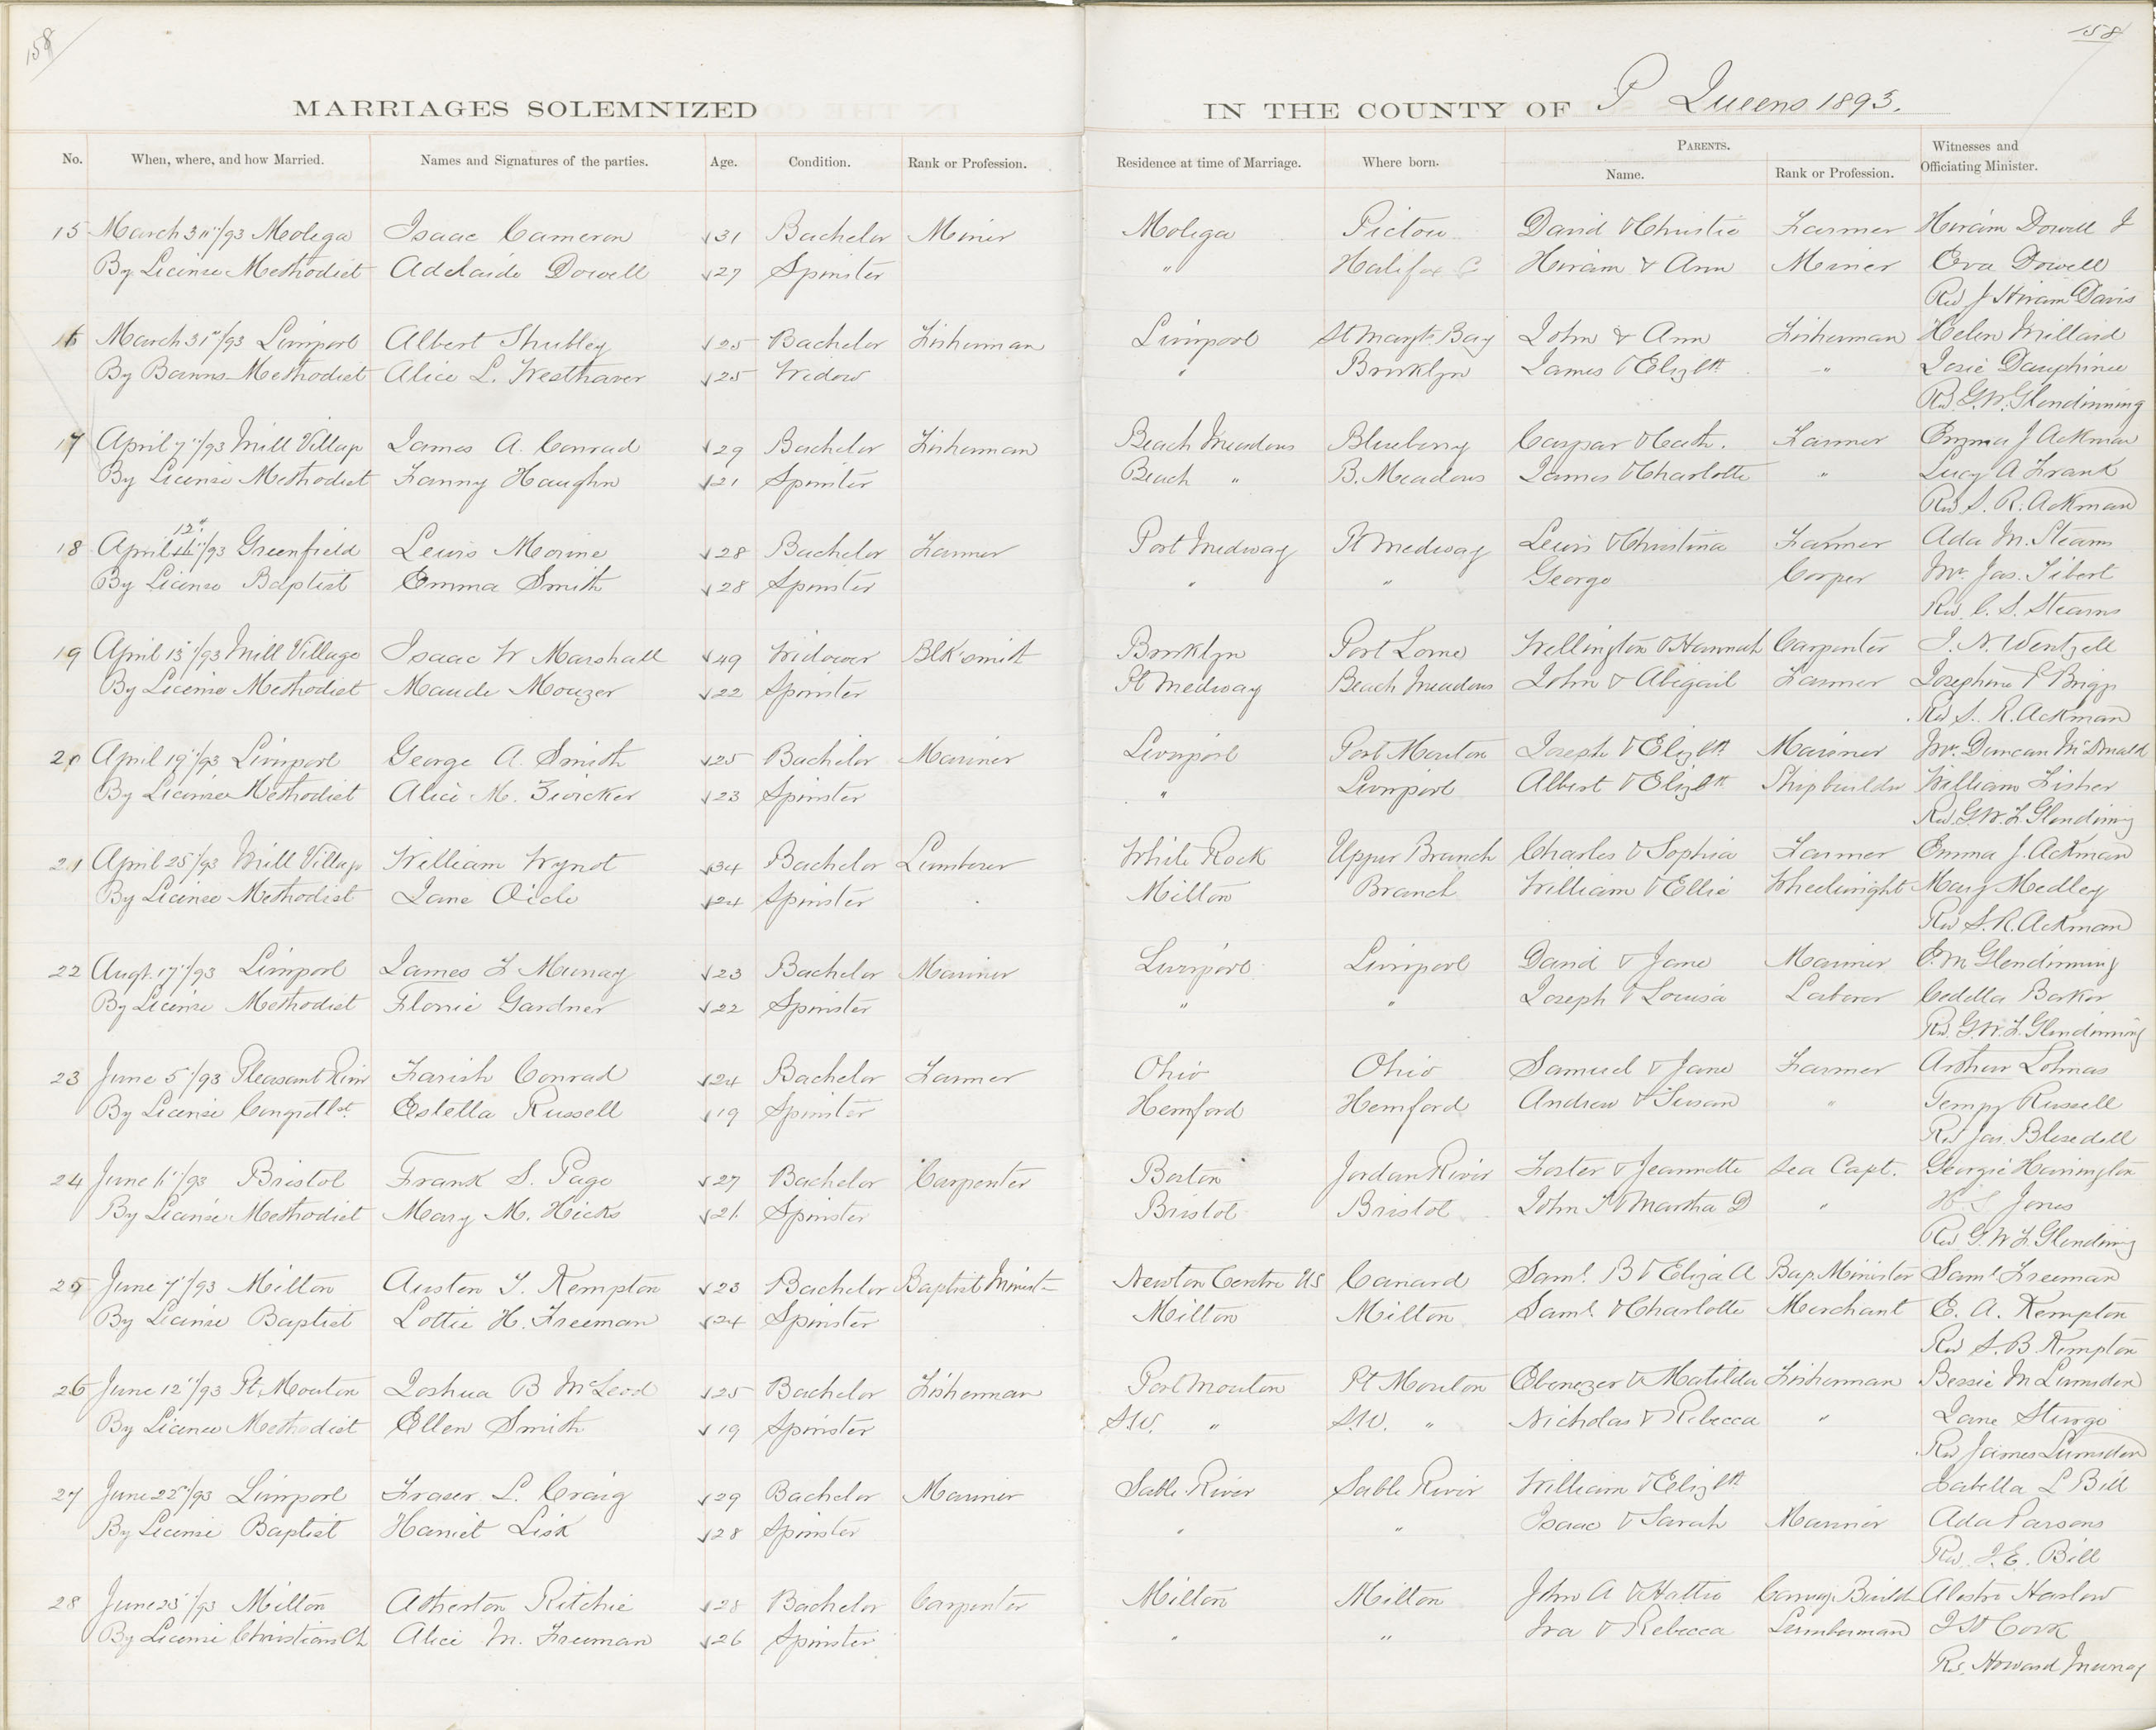 158
158
MARRIAGES SOLEMNIZED IN THE COUNTY OF P Queens 1893.
No. When, where, and how Married. Names and Signatures of the parties. Age. Condition. Rank or Profession. Residence at time of Marriage. Where born. PARENTS. Name. Rank or Profession. Witnesses and Officiating Minister.
15 March 3"/93 Molega Isaac Cameron √31 Bachelor Miner Molega Pictou David & Christie Farmer Hiram Dowell J
By License Methodist Adelaide Dowell √27 Spinster " Halifax C Hiram & Ann Miner Eva Dowell
Rev J Hiram Davis
16 March 31"/93 Liverpool Albert Shubley √25 Bachelor Fisherman Liverpool St Margts Bay John & Ann Fisherman Helen Millard
By Banns Methodist Alice L. Westhaver √25 Widow " Brooklyn James & Elizth " Josie Dauphinee
Rev G.W. Glendinning
17 April 7"/93 Mill Village James A. Conrad √29 Bachelor Fisherman Beach Meadows Blueberry Caspar & Cath. Farmer Emma J Ackman
By License Methodist Fanny Haughn √21 Spinster Beach " B. Meadows James & Charlotte " Lucy A Frank
Rev S. R. Ackman
12"
18 April /93 Greenfield Lewis Morine √28 Bachelor Farmer Port Medway Pt Medway Lewis & Christina Farmer Ada M. Stearns
By License Baptist Emma Smith √28 Spinster " " George Cooper Mrs. Jas. Tibert
Rev. C. S. Stearns
19 April 13"/93 Mill Village Isaac W Marshall √49 Widower Blk'smith Brooklyn Port Lorne Wellington & Hannah Carpenter J. N. Wentzell
By License Methodist Maude Mouzer √22 Spinster Pt Medway Beach Meadows John & Abigail Farmer Josephine P Briggs
Rev S. R. Ackman
20 April 19"/93 Liverpool George A. Smith √25 Bachelor Mariner Liverpool Port Mouton Joseph & Elizth Mariner Mrs. Duncan McDonald
By License Methodist Alice M. Zwicker √23 Spinster " Liverpool Albert & Elizth Shipbuilder William Fisher
Rev. G.W.F. Glendinning
21 April 25"/93 Mill Village William Wynot √34 Bachelor Lumberer White Rock Upper Branch Charles & Sophia Farmer Emma J. Ackman
By License Methodist Jane Oicle √24 Spinster Milton Branch William & Ellie Wheelwright Mary Medley
Rev S. R. Ackman
22 Augt. 17"/93 Liverpool James F Murray √23 Bachelor Mariner Liverpool Liverpool David & Jane Mariner E. M Glendinning
By License Methodist Florie Gardner √22 Spinster " " Joseph & Louisa Laborer Cedella Barker
Rev. G.W.F. Glendinning
23 June 5"/93 Pleasant River Farish Conrad √24 Bachelor Farmer Ohio Ohio Samuel & Jane Farmer Arthur Lohnas
By License Congretlst. Estella Russell √19 Spinster Hemford Hemford Andrew & Susan " Tempy Russell
Rev Jas. Blesedell
24 June 6"/93 Bristol Frank S. Page √27 Bachelor Carpenter Boston Jordan River Foster & Jeannette Sea Capt. Georgie Harrington
By License Methodist Mary M. Hicks √21 Spinster Bristol Bristol John & Martha D " H. S Jones
Rev G.W.F. Glendining
25 June 7"/93 Milton Austen T. Kempton √23 Bachelor Baptist Minist Newton Centre US Canard Saml. B & Eliza A Bap. Minister Saml. Freeman
By License Baptist Lottie H. Freeman √24 Spinster Milton Milton Saml. & Charlotte Merchant E. A. Kempton
Rev S. B. Kempton
26 June 12"/93 Pt Mouton Joshua B McLeod √25 Bachelor Fisherman Port Mouton Pt Mouton Ebenezer & Matilda Fisherman Bessie M Lumsden
By License Methodist Ellen Smith √19 Spinster S.W. " S.W. " Nicholas & Rebecca " Jane Sturgo
Rev James Lumsden
27 June 22"/93 Liverpool Fraser L. Craig √29 Bachelor Mariner Sable River Sable River William & Elizth Isabella L Bill
By License Baptist Harriet Lisk √28 Spinster " " Isaac & Sarah Mariner Ada Parsons
Rev. I. E. Bill
28 June 28"/93 Milton Atherton Ritchie √28 Bachelor Carpenter Milton Milton John A & Hattie Carriage Builder Harlow
By License Christian Ch Alice M. Freeman √26 Spinster " " Ira & Rebecca Lumberman Cook
Rev. Howard Murray